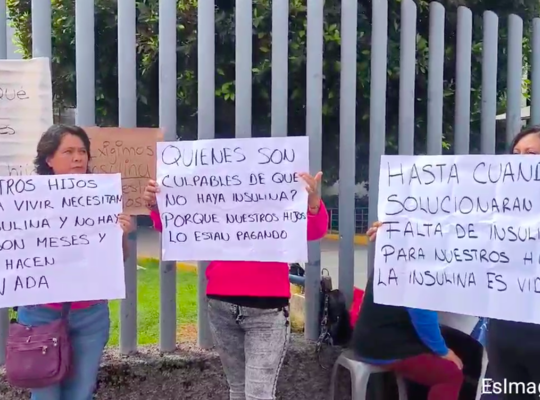 QUE
ES
EXIGIMOS
INSULINA
TROS HIJOS
A VIVIR NECESITAN
SULINA Y NO HAY
SON MESES Y
HACEN
NADA
QUIENES SON
CULPABLES DE QUE
NO HAYA INSULINA?
PORQUE NUESTROS HIJOS
LO ESTAN PAGANDO
HASTA CUAND
SOLUCIONARAN
FALTA DE INSUL
PARA NUESTROS H
LA INSULINA ES VID
EsImag